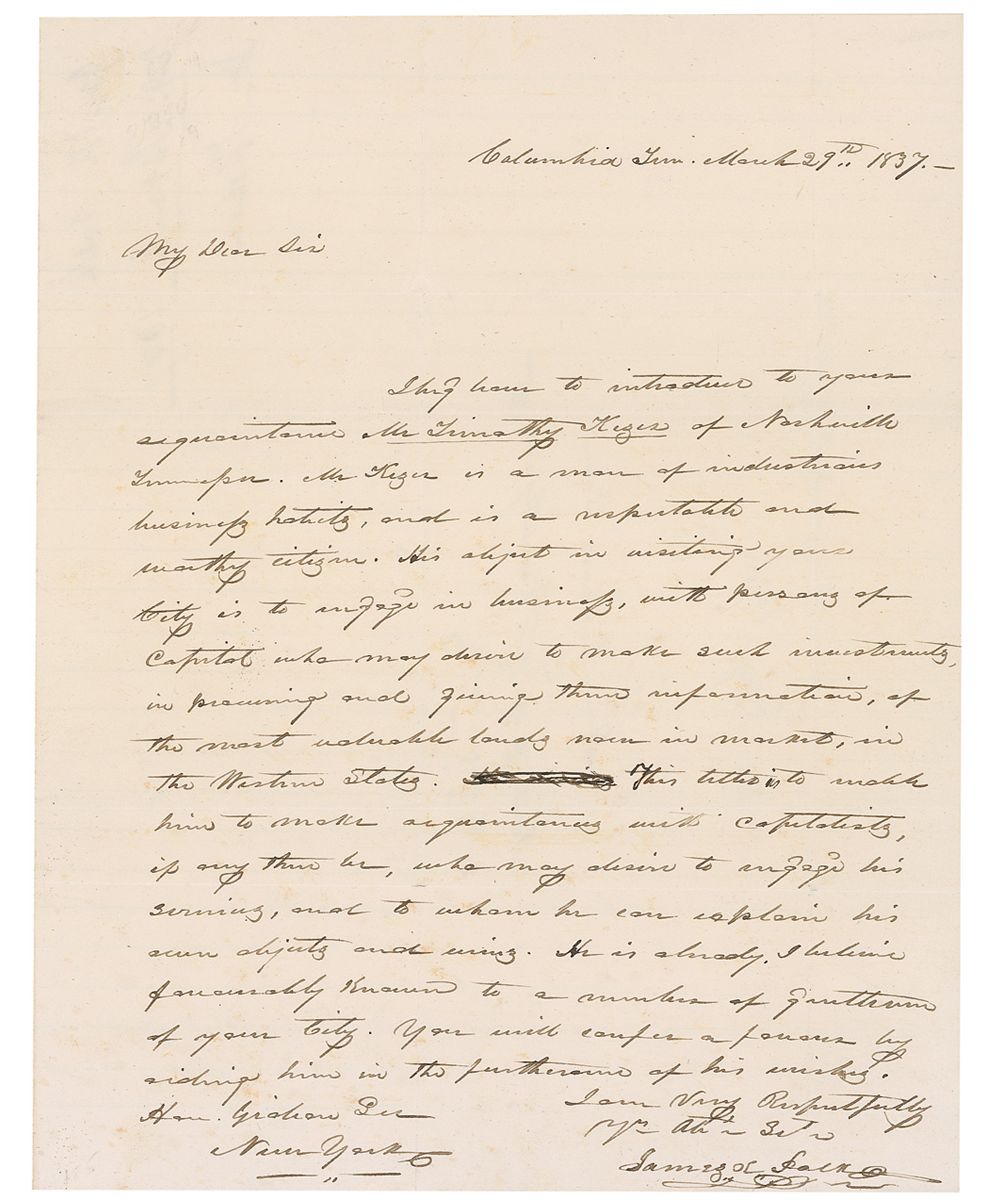 Columbia Tenn. March 29th 1837.—
My Dear Sir
I beg leave to introduce to your
acquaintance Mr Timothy Kezer of Nashville
Tennessee. Mr Kezer is a man of industrious
business habits, and is a reputable and
worthy citizen. His object in visiting your
City is to engage in business, with persons of
Capital who may desire to make such investments,
in procuring and giving them information, of
the most valuable lands now in market, in
the Western States. This letter is to enable
him to make acquaintances with Capitalists,
if any there be, who may desire to engage his
services, and to whom he can explain his
own objects and views. He is already, I believe
favourably known to a number of gentlemen
of your City. You will confer a favour by
aiding him in the furtherance of his wishes.
I am Very Respectfully
Yr. Obt. Svt.
James K. Polk
Hon. Gideon Lee
New York